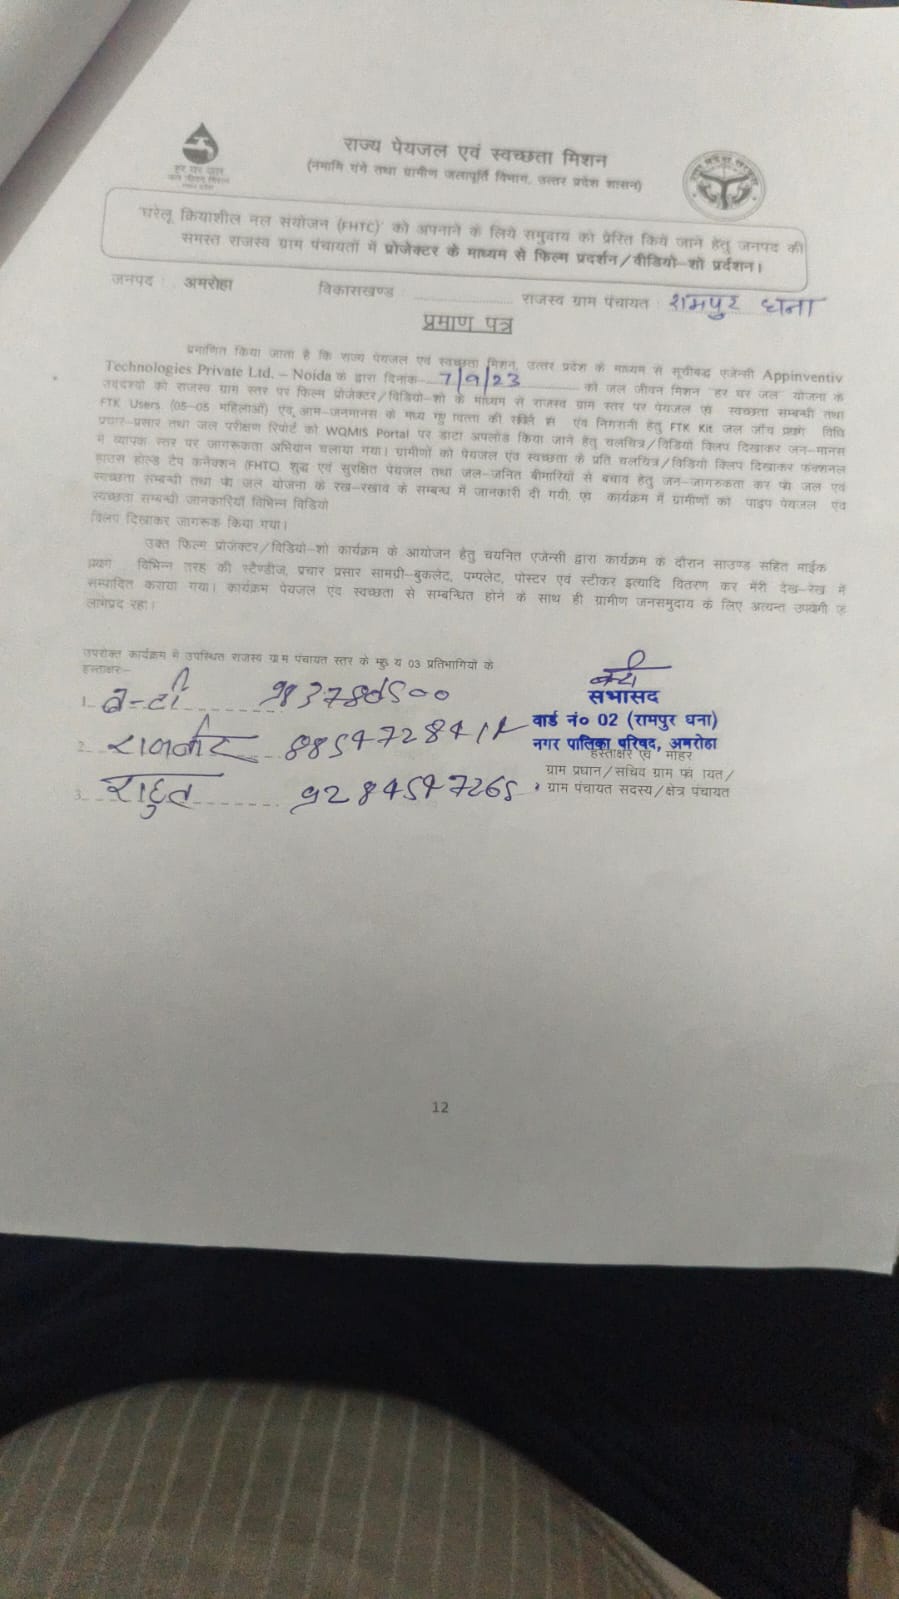 राज्य पेयजल एवं स्वच्छता मिशन
(नमामि गंगे तथा ग्रामीण जलापूर्ति विभाग, उत्तर प्रदेश शासन)
हर घर जल
जल जीवन मिशन
'घरेलू क्रियाशील नल संयोजन (FHTC)' को अपनाने के लिये समुदाय को प्रेरित किये जाने हेतु जनपद की
समस्त राजस्व ग्राम पंचायतों में प्रोजेक्टर के माध्यम से फिल्म प्रदर्शन/वीडियो-शो प्रर्दशन।
जनपद : अमरोहा विकासखण्ड राजस्व ग्राम पंचायत : रामपुर घना
प्रमाण पत्र
प्रमाणित किया जाता है कि राज्य पेयजल एवं स्वच्छता मिशन, उत्तर प्रदेश के माध्यम से सूचीबद्ध एजेन्सी Appinventiv
Technologies Private Ltd. – Noida के द्वारा दिनांक- 7/9/23 को जल जीवन मिशन हर घर जल योजना के
उद्देश्यों को राजस्व ग्राम स्तर पर फिल्म प्रोजेक्टर/विडियो-शो के माध्यम से राजस्व ग्राम स्तर पर पेयजल एवं स्वच्छता सम्बन्धी तथा
FTK Users (05-05 महिलाओं) एवं आम-जनमानस के मध्य की एवं निगरानी हेतु FTK Kit जल जाँच विधि
प्रचार-प्रसार तथा जल परीक्षण रिपोर्ट को WQMIS Portal पर डाटा अपलोड किया जाने हेतु चलचित्र/विडियो क्लिप दिखाकर जन-मानस
में व्यापक स्तर पर जागरूकता अभियान चलाया गया। ग्रामीणों को पेयजल एंव स्वच्छता के प्रति चलचित्र/विडियो क्लिप दिखाकर फंक्शनल
हाउस होल्ड टेप कनेक्शन (FHTC) शुद्ध एवं सुरक्षित पेयजल तथा जल-जनित बीमारियों से बचाव हेतु जन-जागरुकता कर जल एवं
स्वच्छता सम्बन्धी तथा जल योजना के रख-रखाव के सम्बन्ध में जानकारी दी गयी, एवं कार्यक्रम में ग्रामीणों को पाइप पेयजल एंव
स्वच्छता सम्बन्धी जानकारियाँ विभिन्न विडियो
क्लिप दिखाकर जागरूक किया गया।
उक्त फिल्म प्रोजेक्टर/विडियो-शो कार्यक्रम के आयोजन हेतु चयनित एजेन्सी द्वारा कार्यक्रम के दौरान साउण्ड सहित माईक
विभिन्न तरह की स्टैण्डीज, प्रचार प्रसार सामग्री-बुकलेट, पम्पलेट, पोस्टर एवं स्टीकर इत्यादि वितरण कर मेरी देख-रेख में
सम्पादित कराया गया। कार्यक्रम पेयजल एंव स्वच्छता से सम्बन्धित होने के साथ ही ग्रामीण जनसमुदाय के लिए अत्यन्त उपयोगी एवं
लाभप्रद रहा।
उपरोक्त कार्यक्रम में उपस्थित राजस्व ग्राम पंचायत स्तर के 03 प्रतिभागियों के
हस्ताक्षर:-
1. बन्टी
2. राजवीर
3. राहुल 9284547265
बन्टी
सभासद
वार्ड नं० 02 (रामपुर घना)
नगर पालिका परिषद, अमरोहा
हस्ताक्षर एवं मोहर
ग्राम प्रधान/सचिव ग्राम पंचायत/
ग्राम पंचायत सदस्य/क्षेत्र पंचायत
12